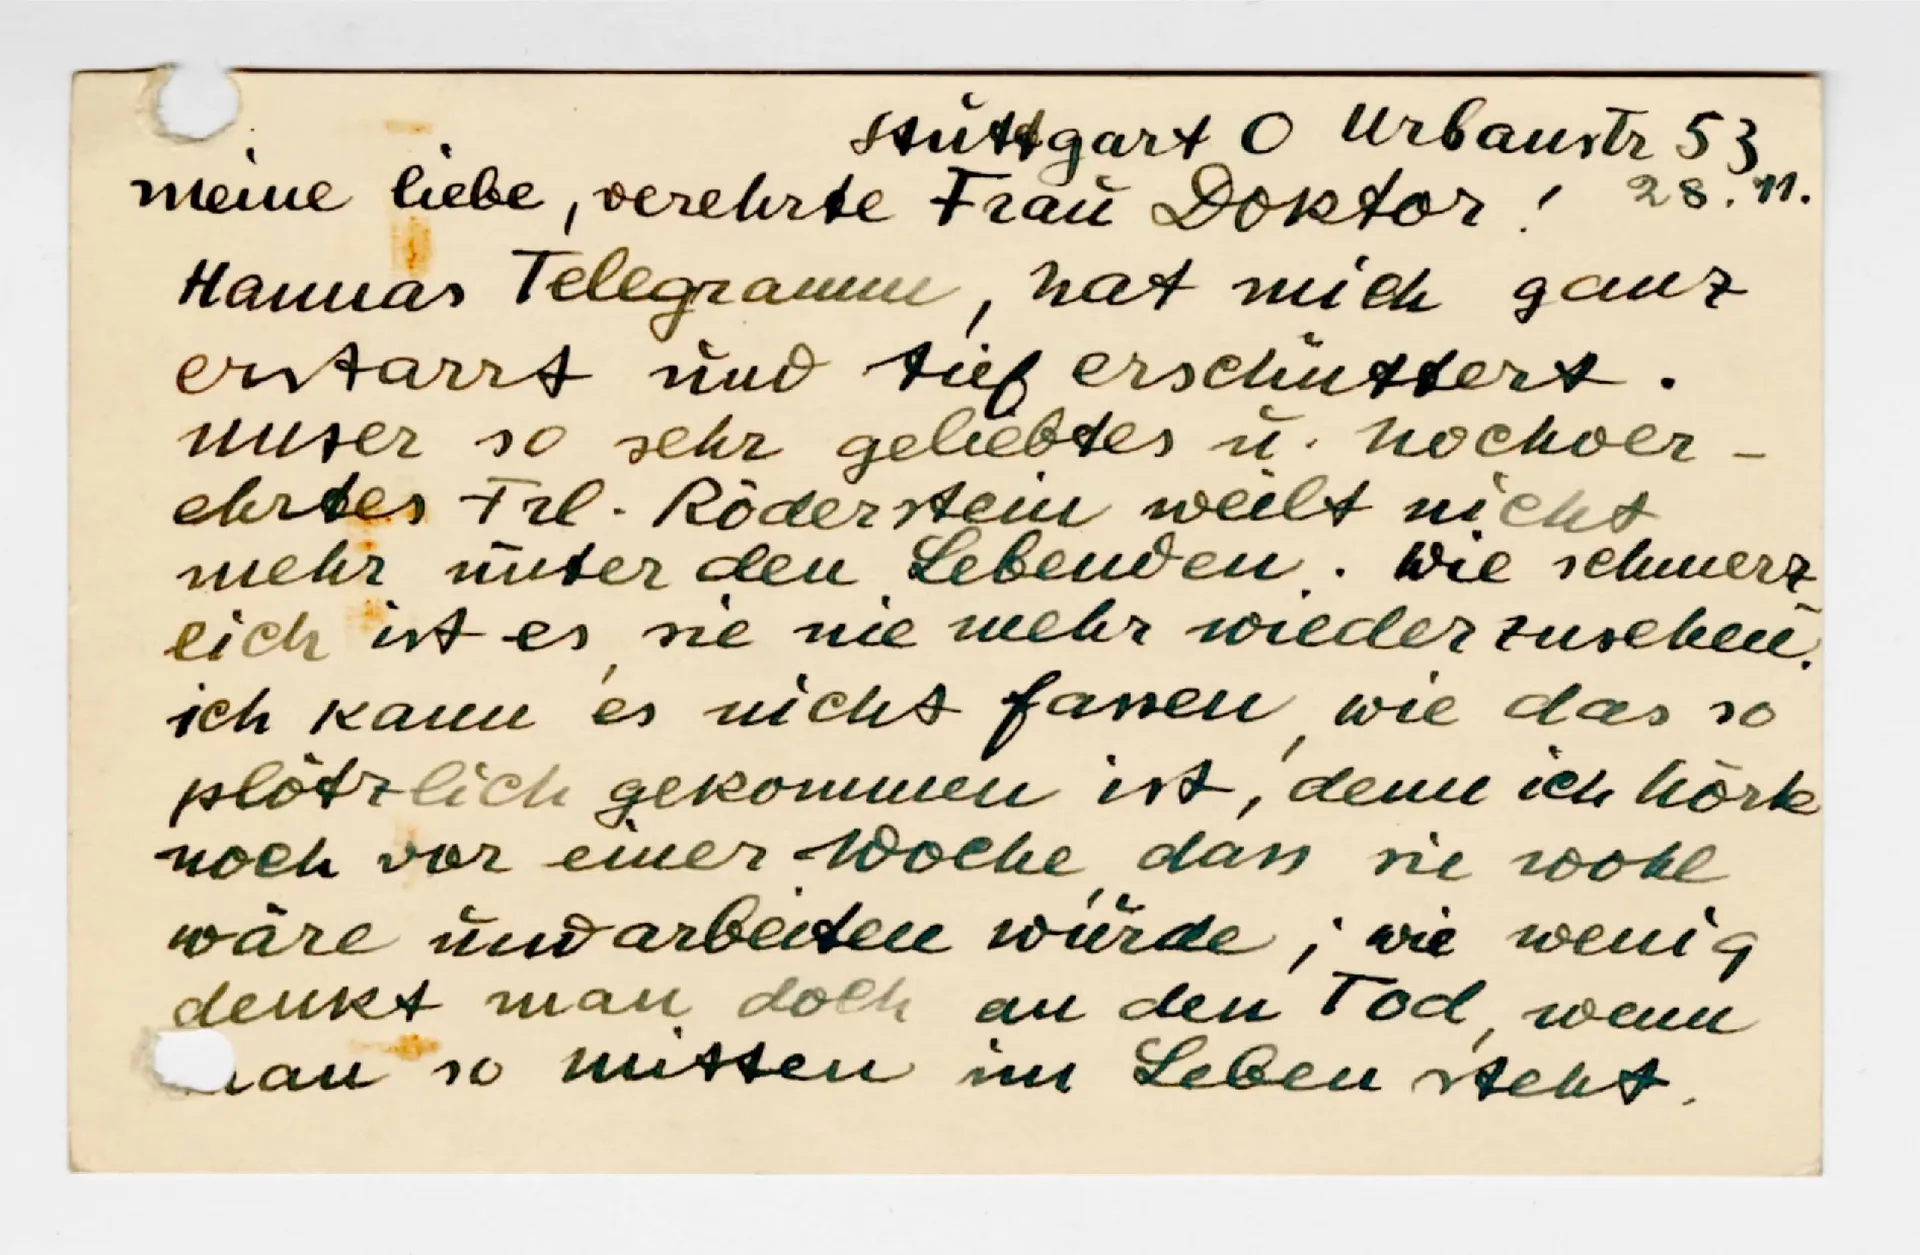 Stuttgart O Urbanstr 53
28. 11.
meine liebe, verehrte Frau Doktor!
Hannas Telegramm, hat mich ganz
erstarrt und tief erschüttert.
unser so sehr geliebtes u. hochver-
ehrtes Frl. Röderstein weilt nicht
mehr unter den Lebenden. Wie schmerz
lich ist es, sie nie mehr wiederzusehen.
ich kann es nicht fassen, wie das so
plötzlich gekommen ist, denn ich hörte
noch vor einer Woche, dass sie wohl
wäre und arbeiten würde; wie wenig
denkt man doch an den Tod, wenn
man so mitten im Leben steht.